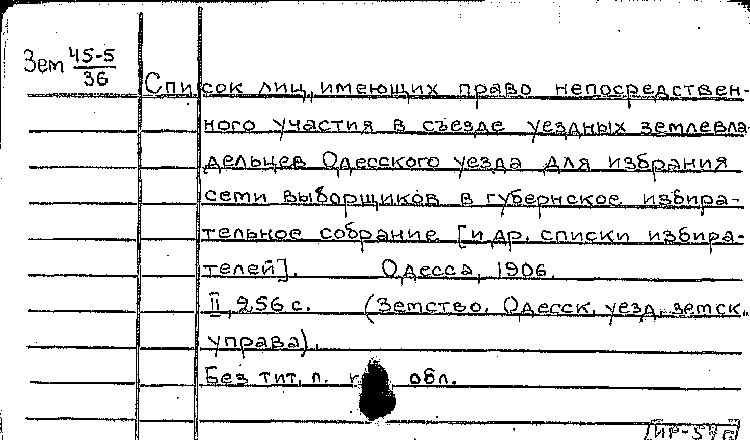 Зем 45-5
36
Список лиц, имеющих право непосредствен-
ного участия в съезде уездных землевла-
дельцев Одесского уезда для избрания
сети выборщиков в губернское избира-
тельное собрание [и др. списки избира-
телей]. Одесса, 1906.
II, 256 с. (Земство. Одесск. уезд. земск.
управа).
Без тит. л. и обл.